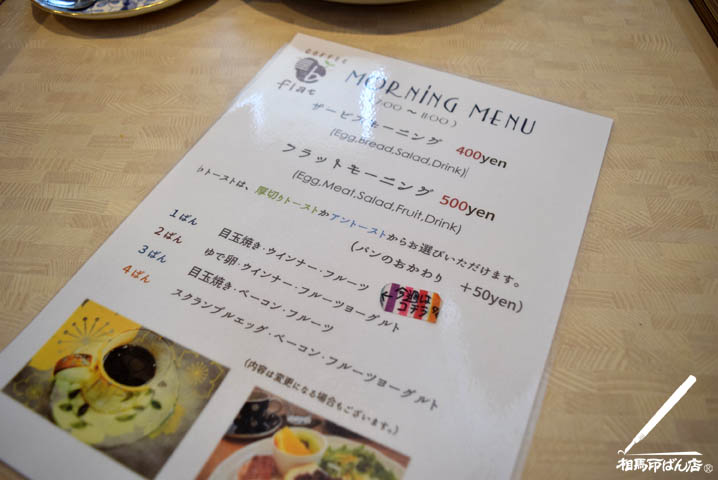 COFFEE
b
flat
MORNING MENU
7:00 ～ 11:00)
サービスモーニング 400yen
(Egg,Bread,Salad,Drink)
フラットモーニング 500yen
(Egg,Meat,Salad,Fruit,Drink)
トーストは、厚切りトーストかアントーストからお選びいただけます。
(パンのおかわり ＋50yen)
1ばん 目玉焼き・ウインナー・フルーツ
2ばん ゆで卵・ウインナー・フルーツヨーグルト
3ばん 目玉焼き・ベーコン・フルーツ
4ばん スクランブルエッグ・ベーコン・フルーツヨーグルト
今週は
コチラ
(内容は変更になる場合もございます。)
相馬印ばん店®